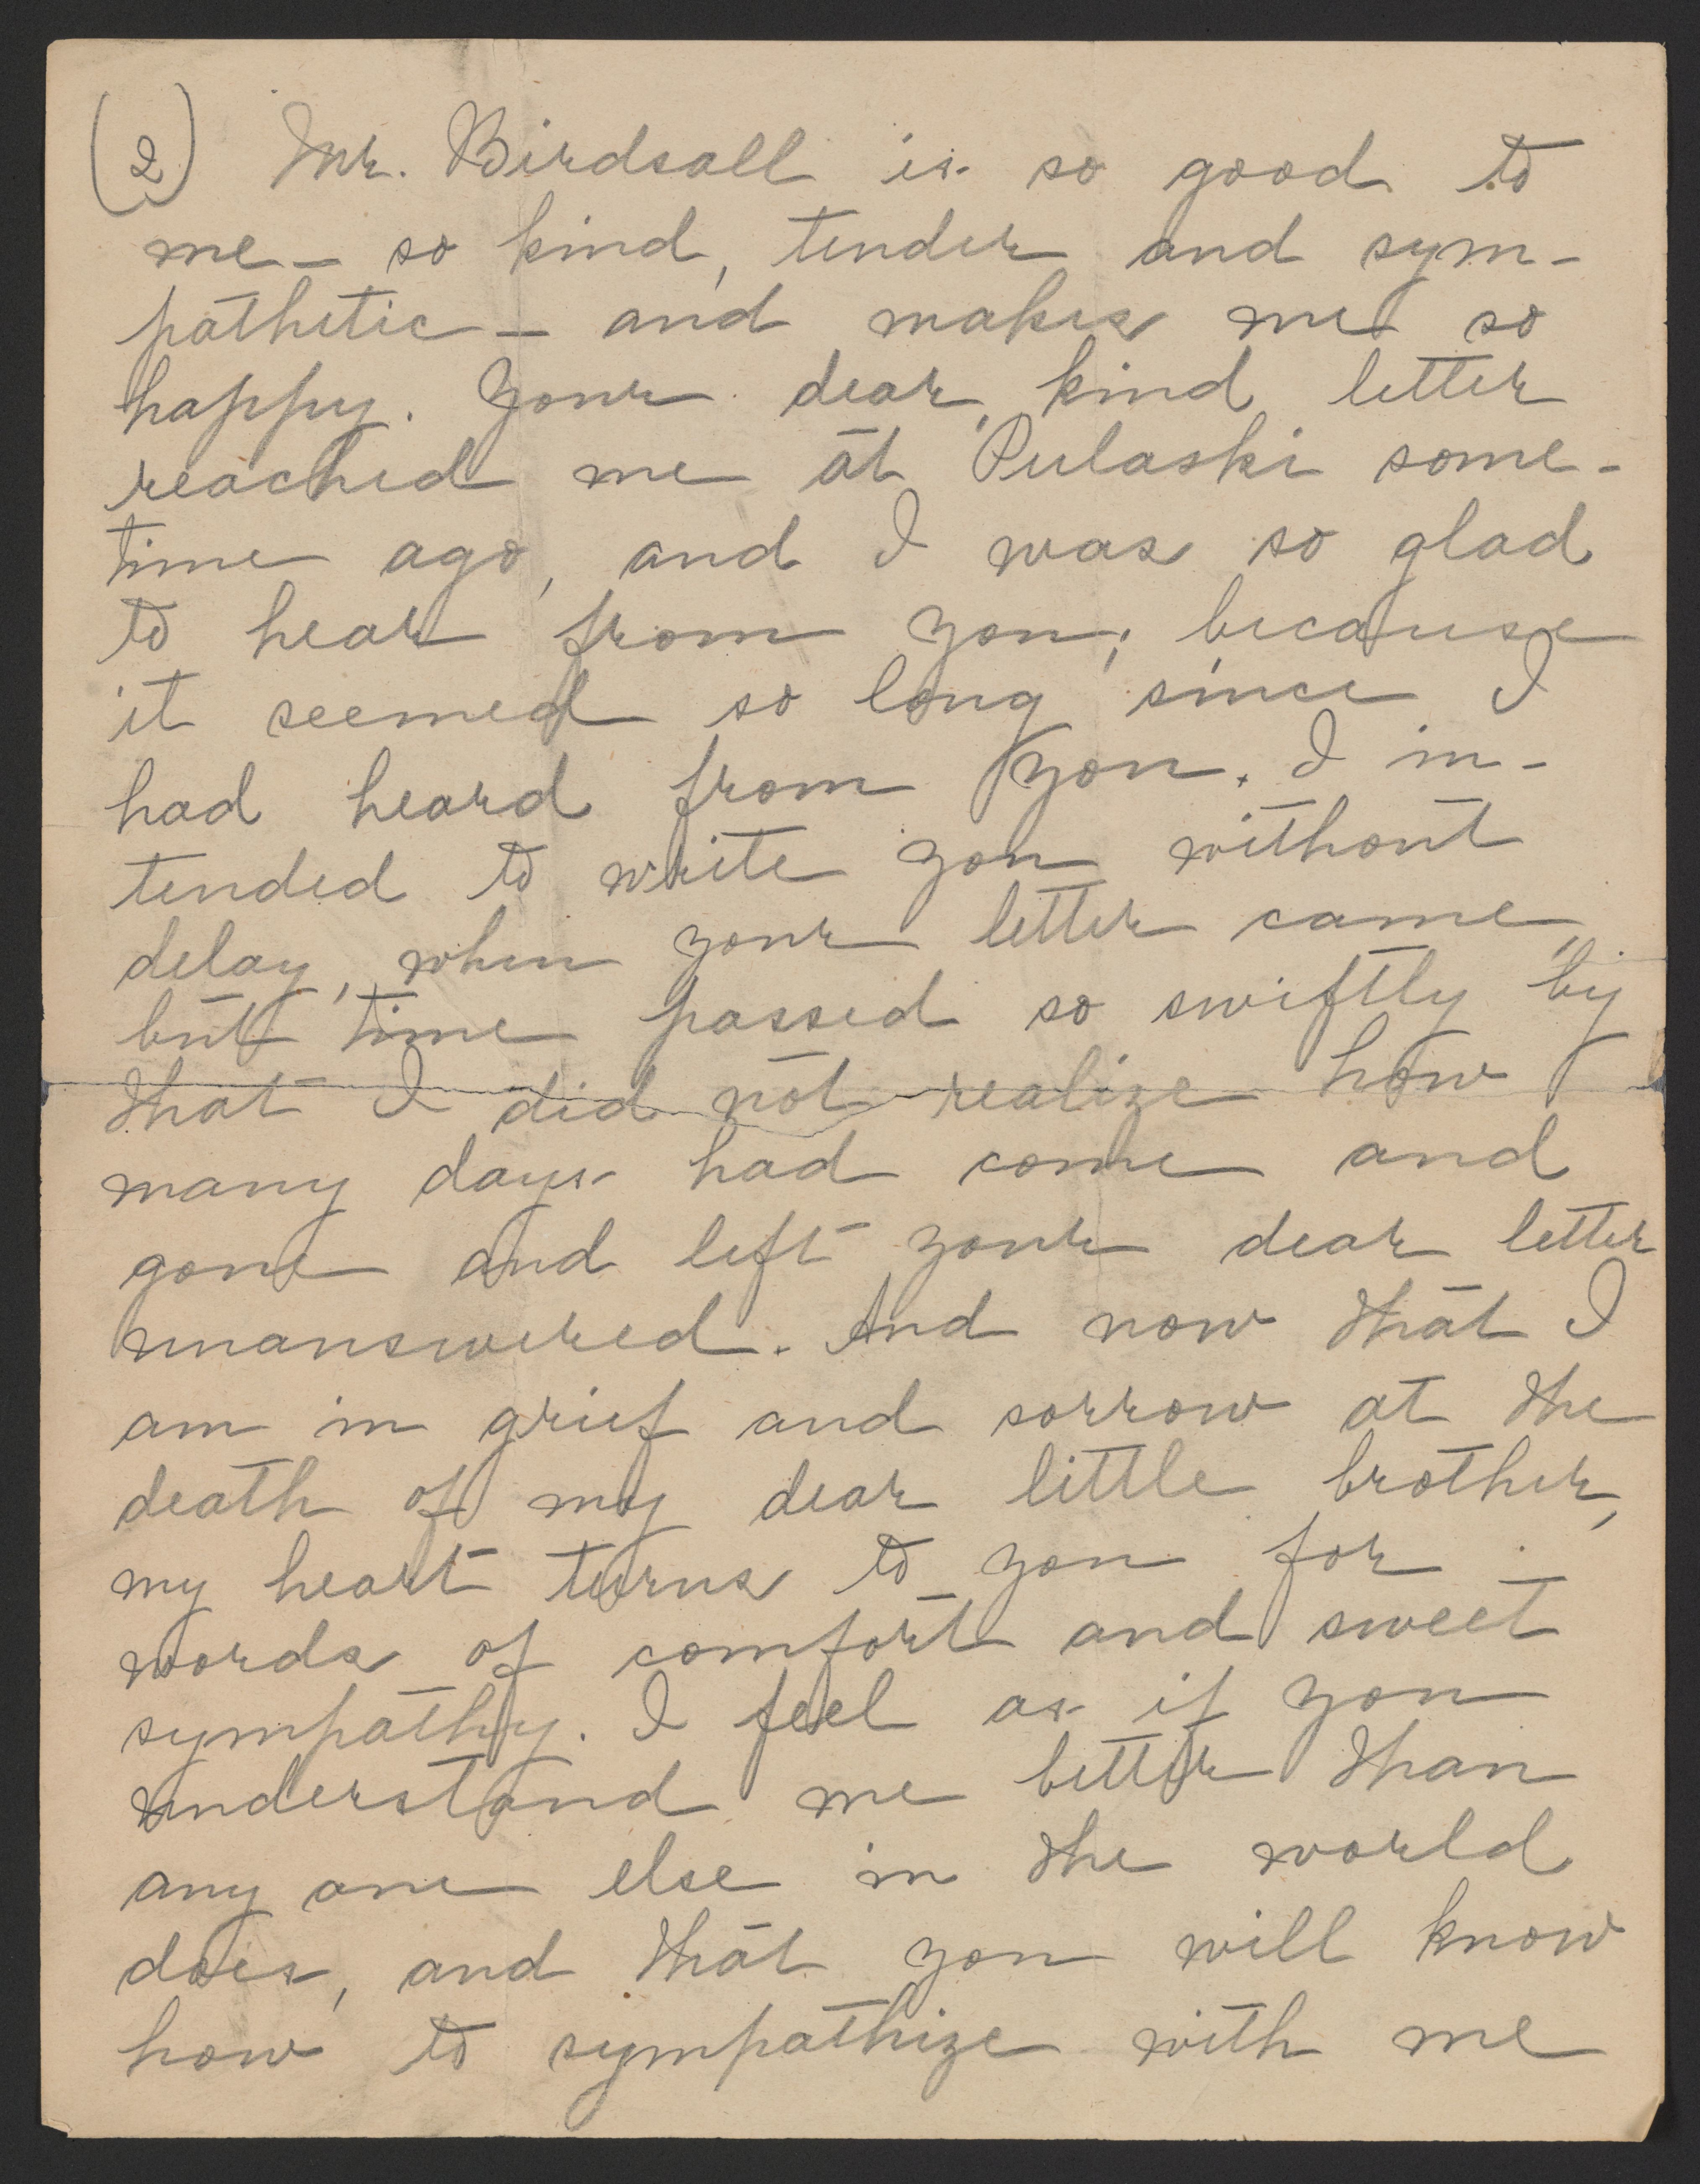 (2) Mr. Birdsall is so good to
me — so kind, tender and sym-
pathetic — and makes me so
happy. Your dear, kind letter
reached me at Pulaski some-
time ago, and I was so glad
to hear from you; because
it seemed so long since I
had heard from you. I in-
tended to write you without
delay, when your letter came,
but time passed so swiftly by
that I did not realize how
many days had come and
gone and left your dear letter
unanswered. And now that I
am in grief and sorrow at the
death of my dear little brother,
my heart turns to you for
words of comfort and sweet
sympathy. I feel as if you
understand me better than
any one else in the world
does, and that you will know
how to sympathize with me